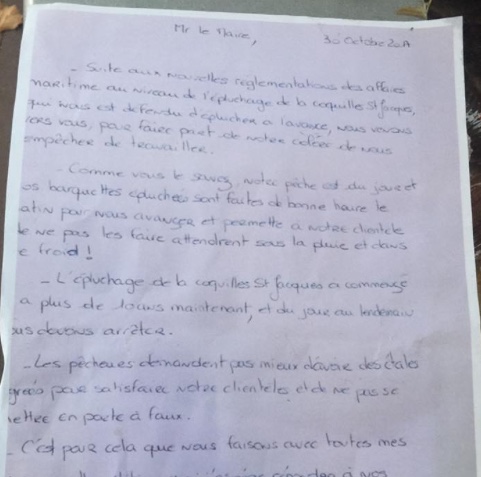 Mr le Maire, 30 Octobre 20
- Suite aux nouvelles réglementations des affaires
maritime au niveau de l'épluchage de la coquille St Jacques,
qui nous est défendu d'eplucher a l'avance, nous venons
vers vous, pour faire part de notre colère de nous
empêcher de travailler.
- Comme vous le savez, notre pêche est du jour et
os barquettes epluchées sont faites de bonne heure le
atin pour nous avancer et permettre a notre clientele
de ne pas les faire attendrent sous la pluie et dans
e froid !
- L'épluchage de la coquilles St Jacques a commencé
a plus de jours maintenant, et du jour au lendemain
ous devons arrêter.
- Les pêcheurs demandent pas mieux d'avoir des étales
pour satisfaire notre clienteles et de ne pas se
ettre en porte à faux.
- C'est pour cela que nous faisons avec toutes mes